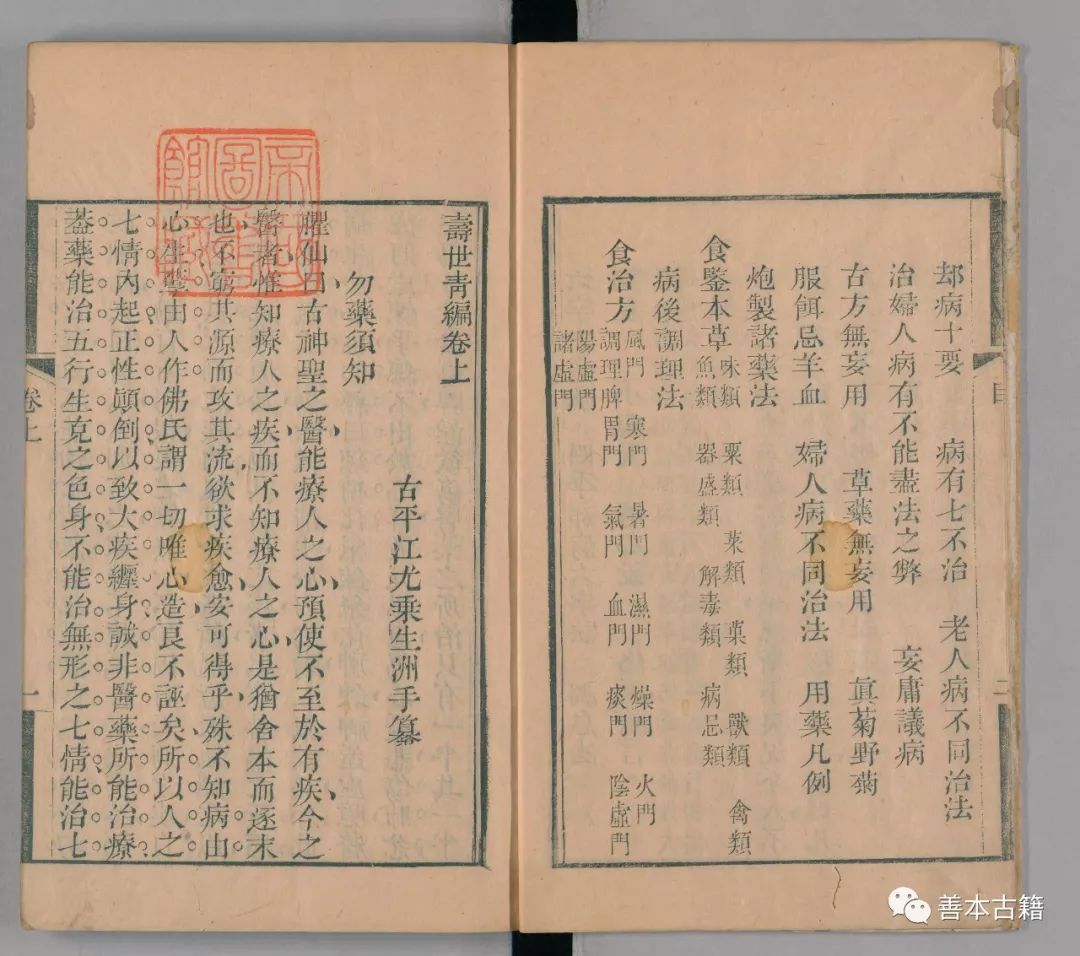 却病十要　病有七不治　老人病不同治法
治婦人病有不能盡法之弊　妄庸議病
古方無妄用　草藥無妄用　眞菊野菊
服餌忌羊血　婦人病不同治法　用藥凡例
炮製諸藥法
食鑒本草　味類　粟類　菜類　菓類　獸類　禽類
魚類　器盛類　解毒類　病忌類
病後調理法
食治方　風門　寒門　暑門　濕門　燥門　火門
調理脾胃門　氣門　血門　痰門　陰虛門
陽虛門
諸虛門
目
二
壽世青編卷上
古平江尤乘生洲手纂
勿藥須知
臞仙曰古神聖之醫能療人之心預使不至於有疾今之
醫者惟知療人之疾而不知療人之心是猶舍本而逐末
也不窮其源而攻其流欲求疾愈安可得乎殊不知病由
心生孽由人作佛氏謂一切唯心造良不誣矣所以人之
七情內起正性顚倒以致大疾纏身誠非醫藥所能治療
葢藥能治五行生克之色身不能治無形之七情能治七
卷上
一
善本古籍